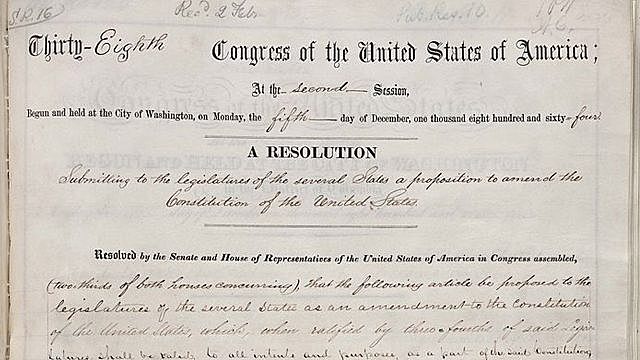 S.R. 16
Rec'd. 2 Feb.
Pub. Res. 10.
Thirty-Eighth Congress of the United States of America;
At the second Session,
Begun and held at the City of Washington, on Monday, the fifth day of December, one thousand eight hundred and sixty-four
A RESOLUTION
Submitting to the legislatures of the several States a proposition to amend the
Constitution of the United States.
Resolved by the Senate and House of Representatives of the United States of America in Congress assembled,
(two-thirds of both houses concurring), That the following article be proposed to the
legislatures of the several States as an amendment to the Constitution
of the United States, which, when ratified by three-fourths of said Legis-
latures, shall be valid, to all intents and purposes, as a part of the said Constitution,